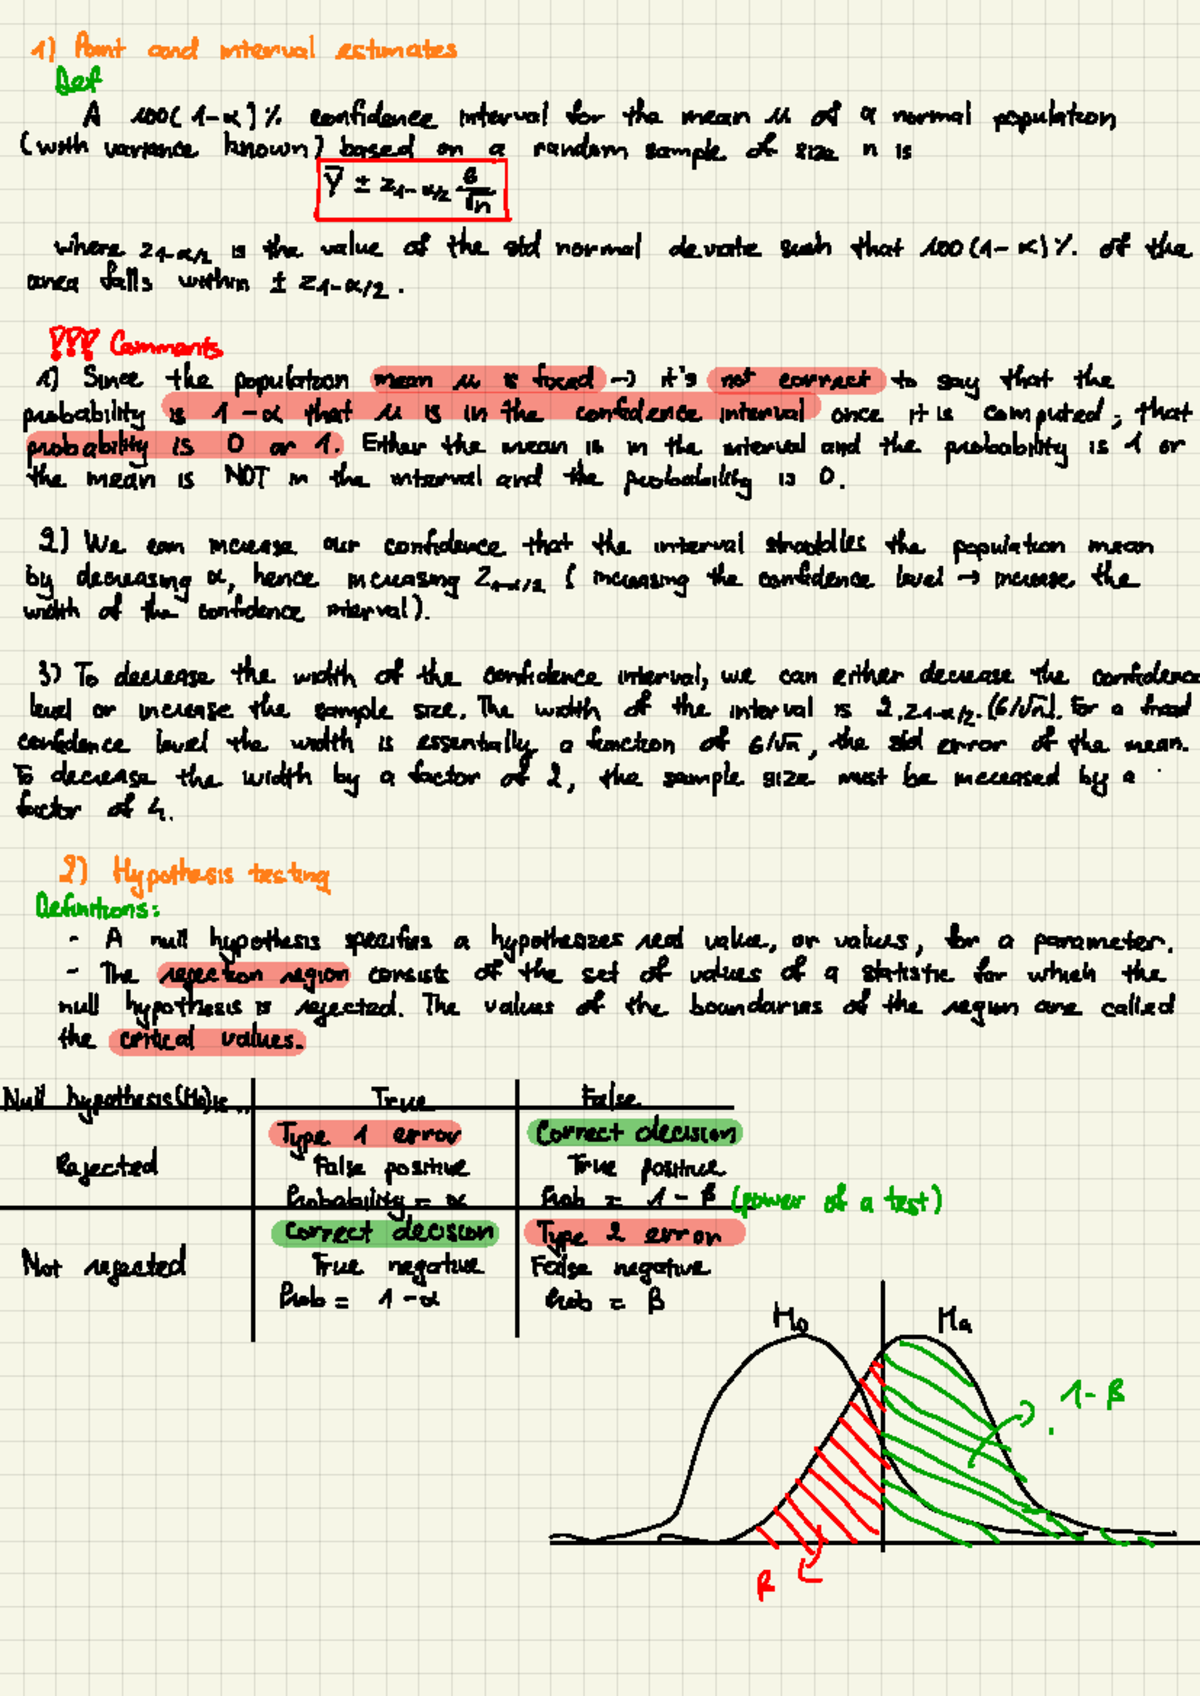 1) Point and interval estimates
Def
A 100(1-α)% confidence interval for the mean μ of a normal population
(with variance known) based on a random sample of size n is
Ȳ ± z₁₋α/₂ σ/√n
where z₁₋α/₂ is the value of the std normal deviate such that 100(1-α)% of the
area falls within ± z₁₋α/₂.
!!! Comments
1) Since the population mean μ is fixed → it's not correct to say that the
probability is 1-α that μ is in the confidence interval once it is computed; that
probability is 0 or 1. Either the mean is in the interval and the probability is 1 or
the mean is NOT in the interval and the probability is 0.
2) We can increase our confidence that the interval straddles the population mean
by decreasing α, hence increasing z₁₋α/₂ (increasing the confidence level → increase the
width of the confidence interval).
3) To decrease the width of the confidence interval, we can either decrease the confidenc
level or increase the sample size. The width of the interval is 2.z₁₋α/₂.(σ/√n). For a fixed
confidence level the width is essentially a function of σ/√n, the std error of the mean.
To decrease the width by a factor of 2, the sample size must be increased by a
factor of 4.
2) Hypothesis testing
Definitions:
- A null hypothesis specifies a hypothesizes real value, or values, for a parameter.
- The rejection region consists of the set of values of a statistic for which the
null hypothesis is rejected. The values of the boundaries of the region are called
the critical values.
Null hypothesis (H₀) is... True False
Type 1 error Correct decision
Rejected False positive True positive
Probability = α Prob = 1-β (power of a test)
Correct decision Type 2 error
Not rejected True negative False negative
Prob = 1-α Prob = β
H₀ Ha
1-β
β